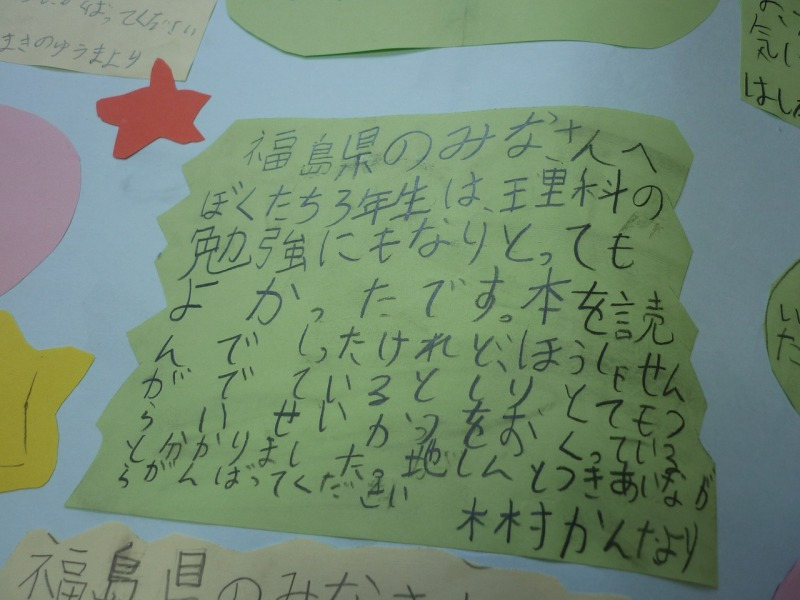 ばってください
まきのゆうまより
気に
福島県のみなさんへ
ぼくたち3年生は、理科の
勉強にもなりとっても
よかったです。本を読
んでしったけれど、ほうしゃせん
がでているとしりとてもつ
らいせいかつをおくっている
と分かりました。地しんとつきあいなが
らがんばってください
木村かんたより
いた
福島県のみなさん